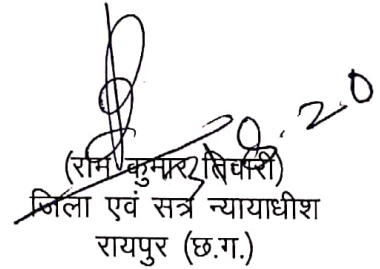 (राम कुमार तिवारी)
जिला एवं सत्र न्यायाधीश
रायपुर (छ.ग.)